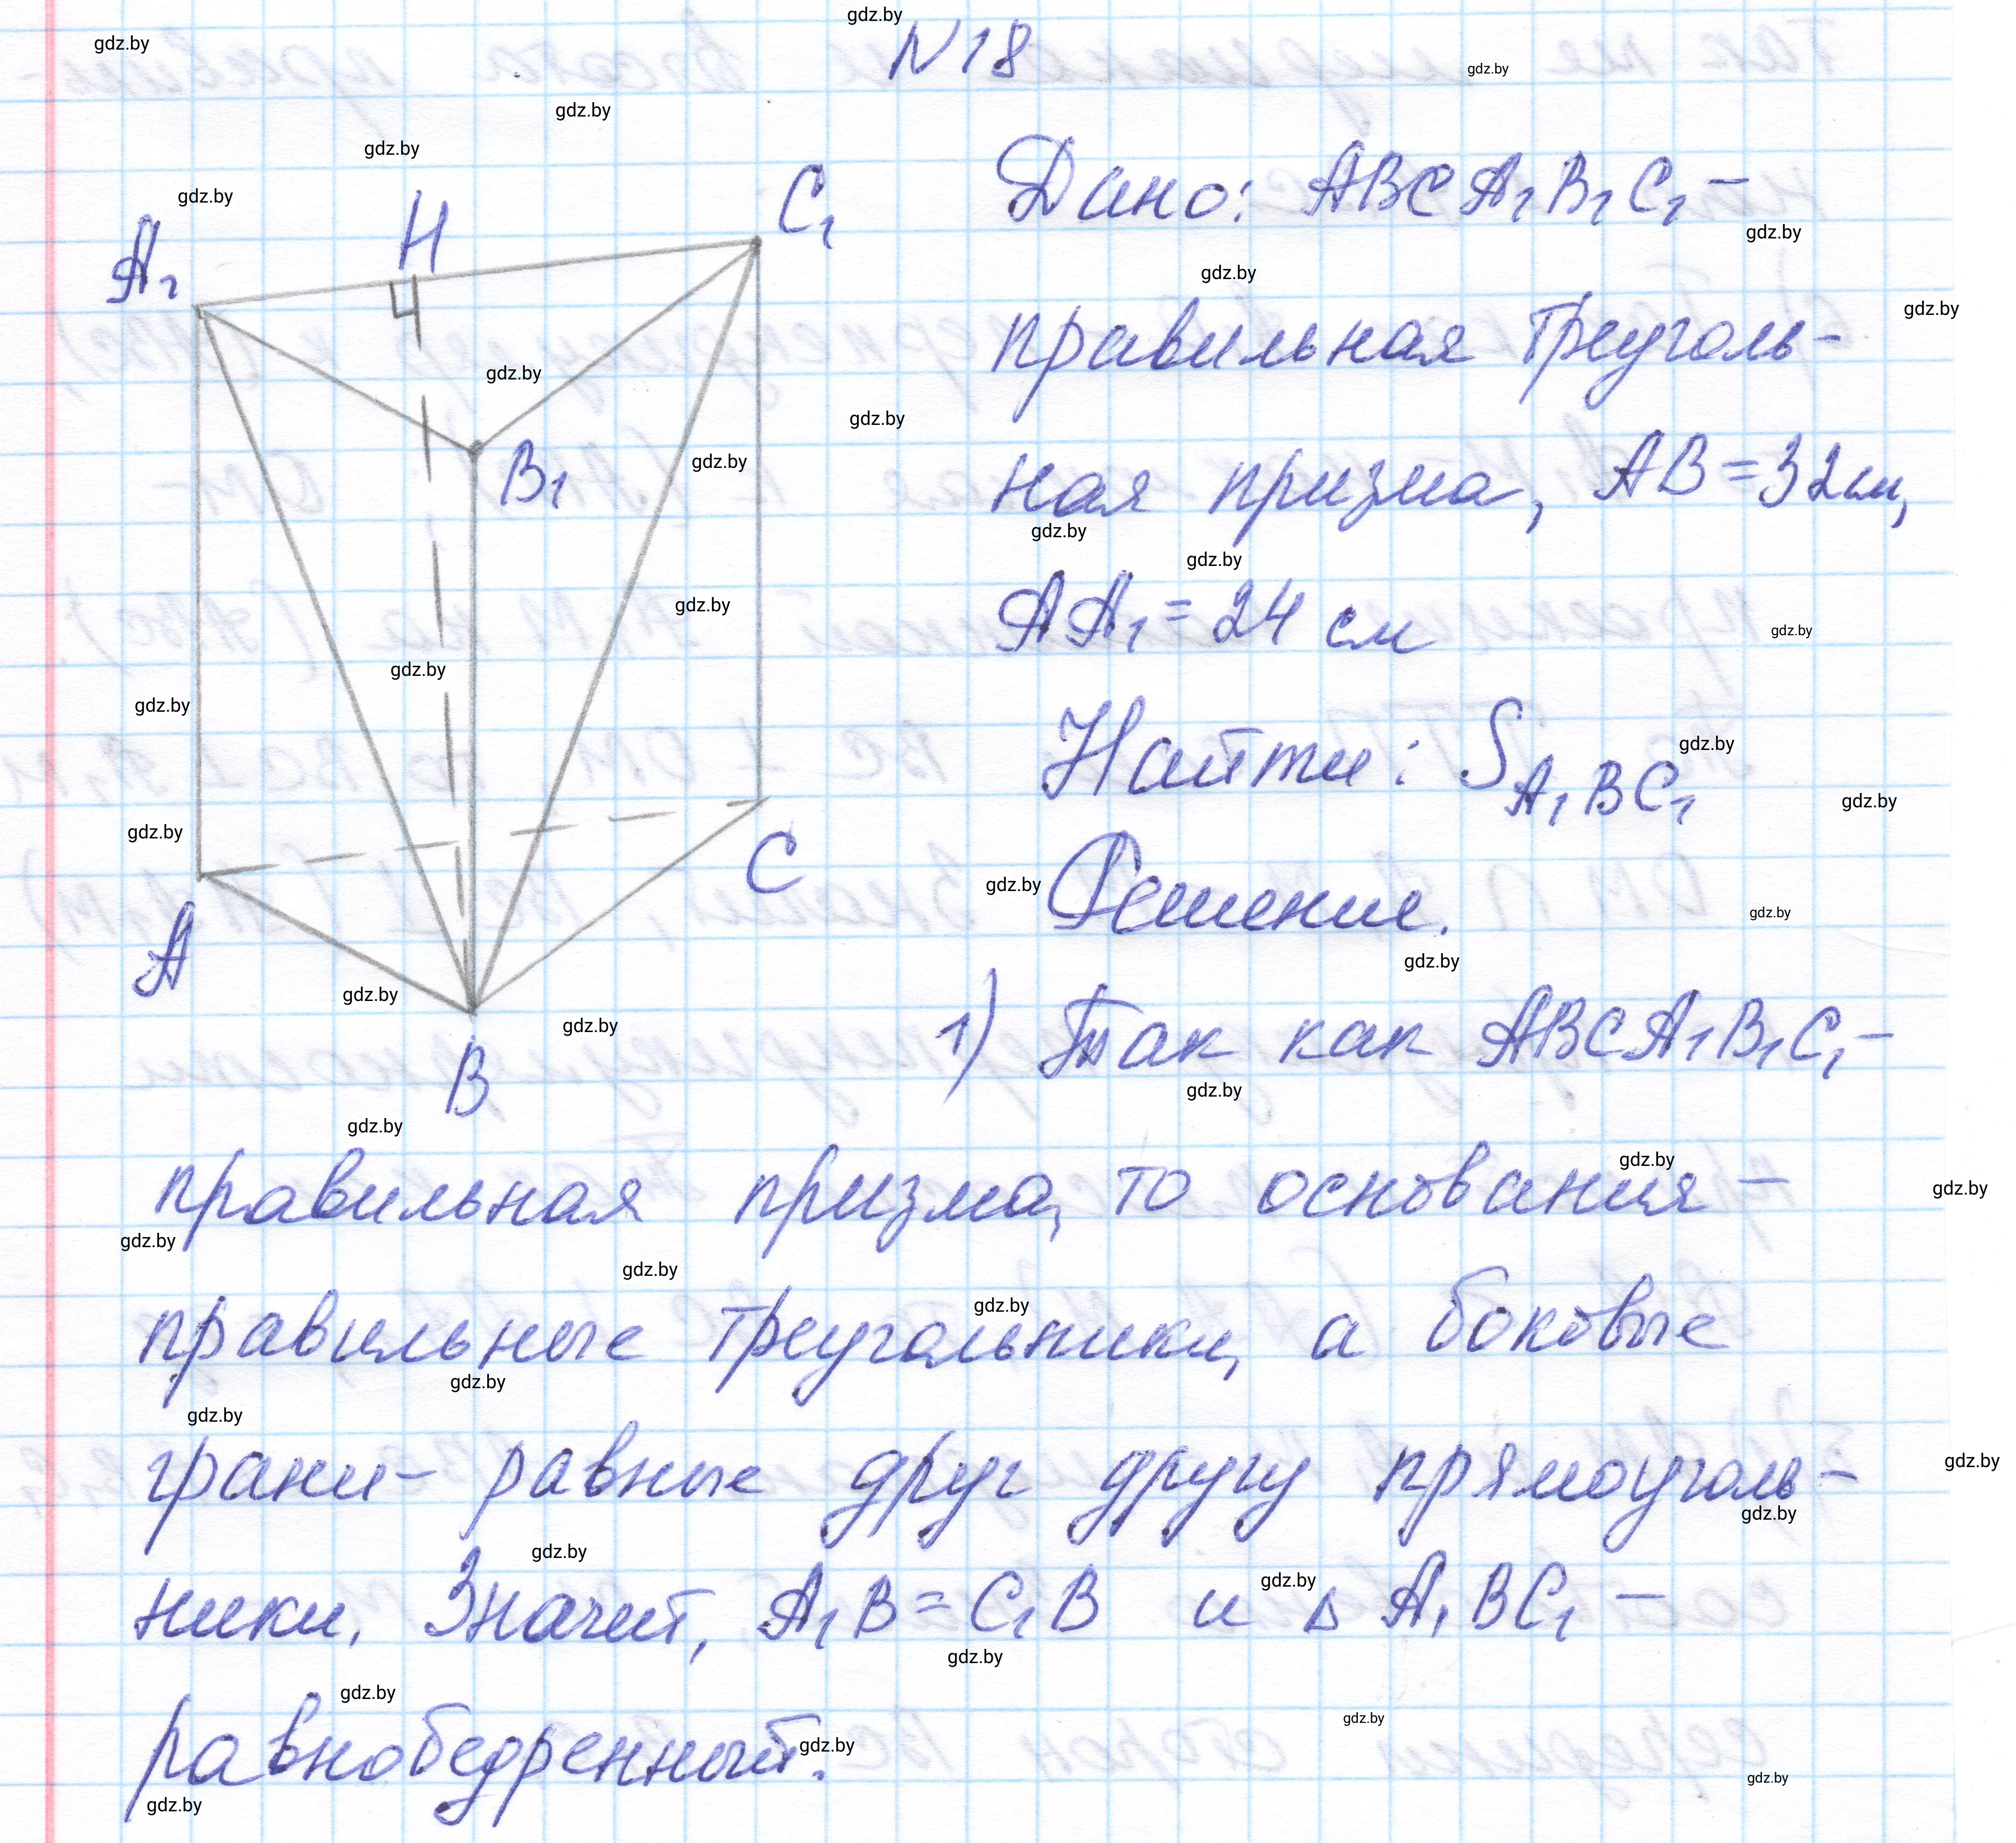 N18
Дано: ABCA₁B₁C₁ –
правильная треуголь-
ная призма, AB = 32 см,
AA₁ = 24 см
Найти: S A₁BC₁
Решение.
1) Так как ABCA₁B₁C₁ –
правильная призма, то основания –
правильные треугольники, а боковые
грани – равные друг другу прямоуголь-
ники. Значит, A₁B = C₁B и △ A₁BC₁ –
равнобедренный.
A₁
H
C₁
B₁
A
C
B
gdz.by